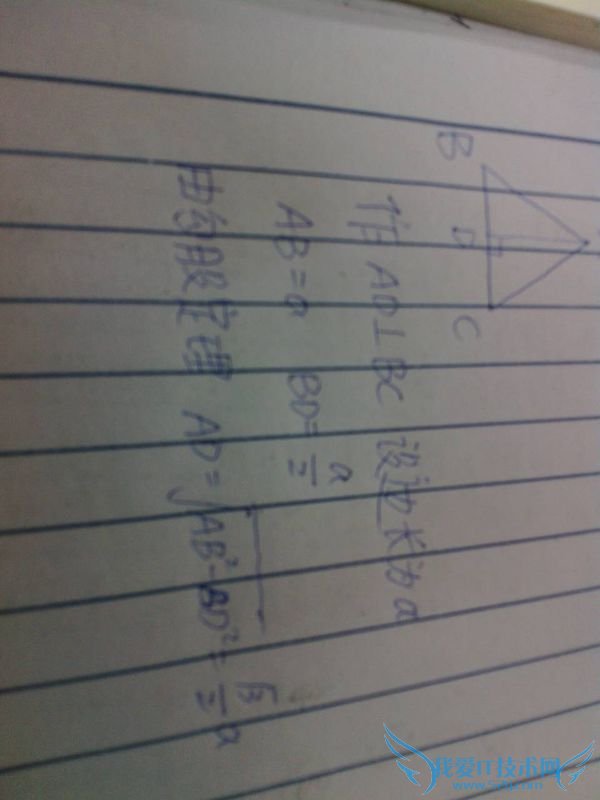 B D C
作AD⊥BC 设边长为a
AB=a BD=a/2
由勾股定理 AD=√AB²-BD²=√3/2 a
我爱IT技术网